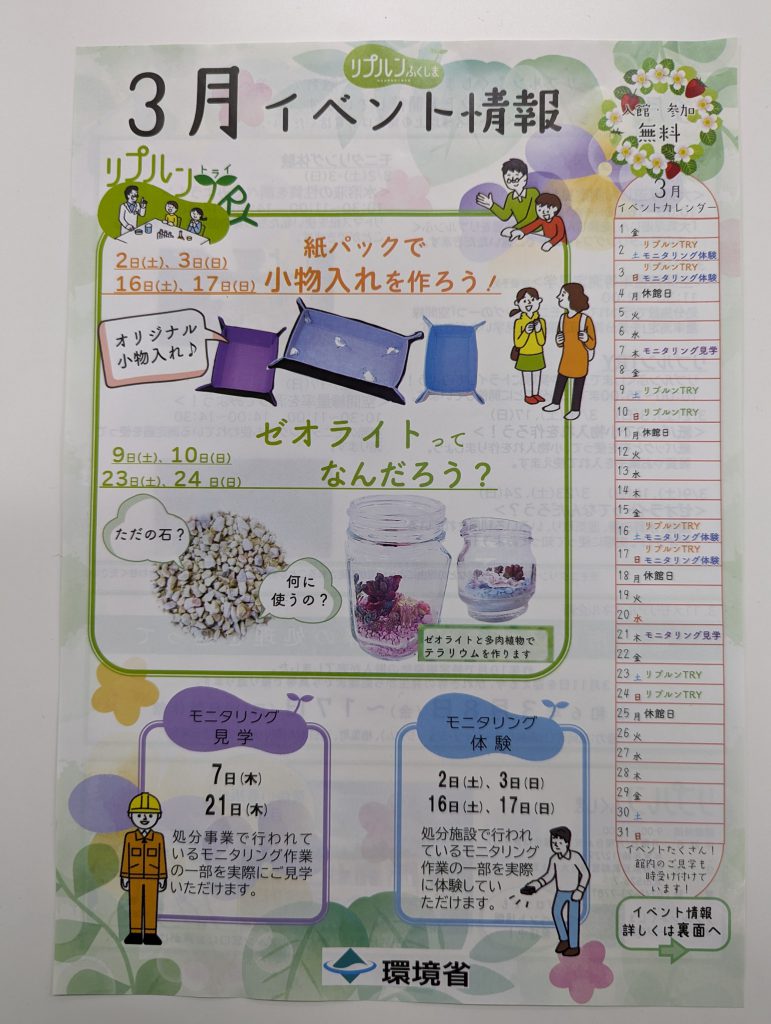 リプルンふくしま
3月イベント情報
入館・参加
無料
リプルン
トライ
TRY
2日(土)、3日(日)
16日(土)、17日(日)
紙パックで
小物入れを作ろう!
オリジナル
小物入れ♪
9日(土)、10日(日)
23日(土)、24日(日)
ゼオライトって
なんだろう?
ただの石?
何に
使うの?
ゼオライトと多肉植物で
テラリウムを作ります
モニタリング
見学
7日(木)
21日(木)
処分事業で行われて
いるモニタリング作業
の一部を実際にご見学
いただけます。
モニタリング
体験
2日(土)、3日(日)
16日(土)、17日(日)
処分施設で行われ
ているモニタリング
作業の一部を実際
に体験してい
ただけます。
3月
イベントカレンダー
1 金
2 土 リプルンTRY
モニタリング体験
3 日 リプルンTRY
モニタリング体験
4 月 休館日
5 火
6 水
7 木 モニタリング見学
8 金
9 土 リプルンTRY
10 日 リプルンTRY
11 月 休館日
12 火
13 水
14 木
15 金
16 土 リプルンTRY
モニタリング体験
17 日 リプルンTRY
モニタリング体験
18 月 休館日
19 火
20 水
21 木 モニタリング見学
22 金
23 土 リプルンTRY
24 日 リプルンTRY
25 月 休館日
26 火
27 水
28 木
29 金
30 土
31 日
イベントたくさん!
館内のご見学も
随時受け付けて
います!
イベント情報
詳しくは裏面へ
環境省